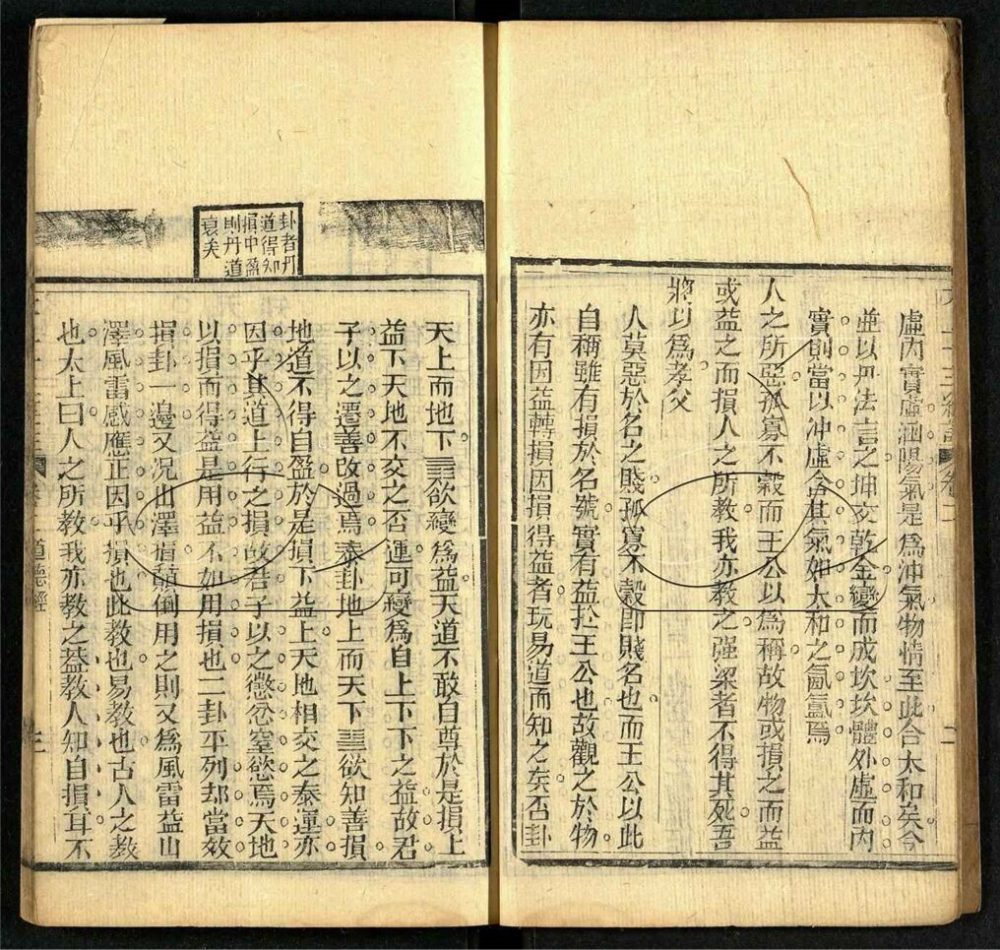 虛內實虛涵陽氣是爲沖氣物情至此合太和矣今
並以丹法言之坤交乾金變而成坎坎體外虛而內
實則當以沖虛含其氣如太和之氤氳焉
人之所惡孤寡不穀而王公以爲稱故物或損之而益
或益之而損人之所教我亦教之强梁者不得其死吾
將以爲孝父
人莫惡於名之賤孤寡不穀卽賤名也而王公以此
自稱雖有損於名號實有益於王公也故觀之於物
亦有因益轉損因損得益者玩易道而知之矣否卦
卦者丹
道得知
損中盈
則丹道
衰矣
天上而地下䷋欲變爲益天道不敢自尊於是損上
益下天地不交之否運可變爲自上下下之益故君
子以之遷善改過焉泰卦地上而天下䷊欲知善損
地道不得自盈於是損下益上天地相交之泰運亦
因乎其道上行之損故君子以之懲忿窒慾焉天地
以損而得益是用益不如用損也二卦平列却當效
損卦一邊又况山澤損顛倒用之則又爲風雷益山
澤風雷感應正因乎損也此教也易教也古人之教
也太上曰人之所教我亦教之蓋教人知自損耳不
道德經